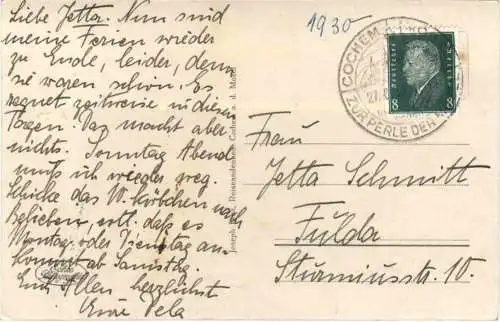 Liebe Jetta. Nun sind
meine Ferien wieder
zu Ende, leider, denn
sie waren schön. Es
regnet zeitweise in diesen
Tagen. Das macht aber
nichts. Sonntag Abend
muß ich wieder weg.
Schicke das W. körbchen nach
Belieben, evtl. daß es
Montag oder Dienstag an-
kommt ab Samstag.
Euch Allen herzlichst
Eure Vela
Joseph Reisenandenken Cochem a. d. Mosel
1930
COCHEM
ZUR PERLE DER
27
Deutsches Reich
8 8
Frau
Jetta Schmitt
Fulda
Sturmiusstr. 10.